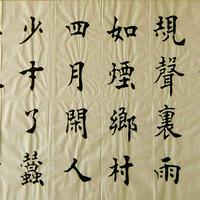 規聲裏雨
如煙鄉村
四月閑人
少才了蠶